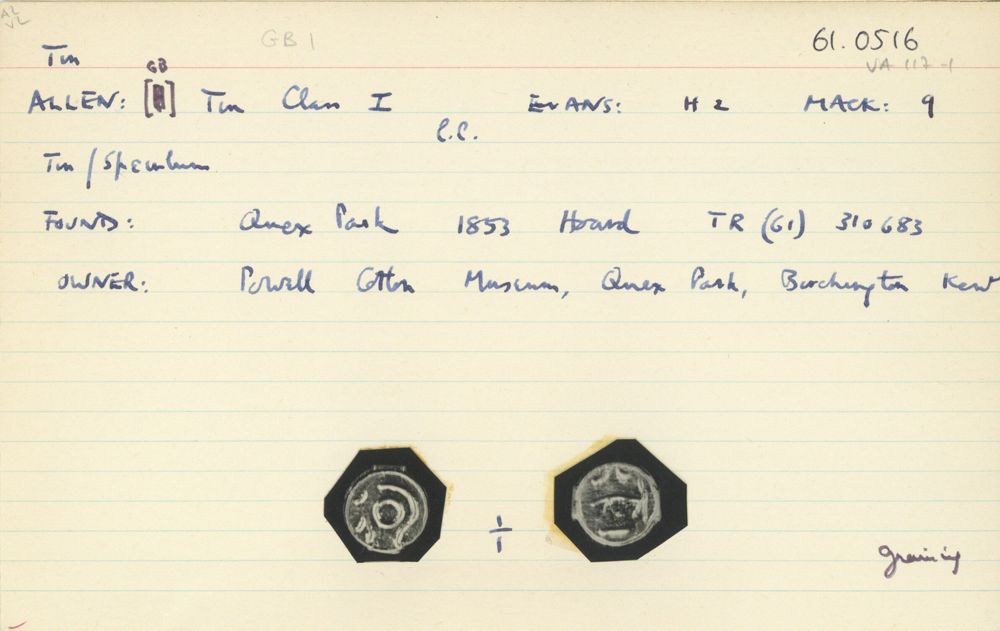 AL
VL
GB 1
61.0516
VA 117-1
Tin
GB
ALLEN: [ ] Tin Class I EVANS: H 2 MACK: 9
C.C.
Tin / Speculum
FOUND: Quex Park 1853 Hoard TR (61) 310683
OWNER: Powell Cotton Museum, Quex Park, Birchington Kent
÷
graining